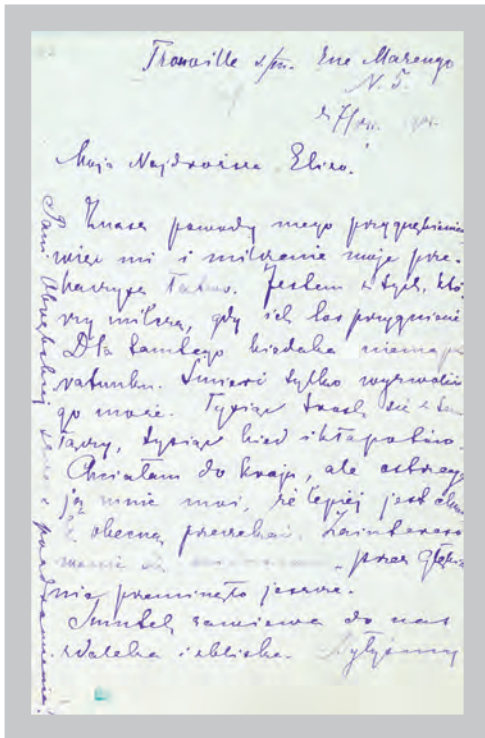 Trouville s/m. Rue Marengo
N. 5.
d. 7/VII.
Moja Najdroższa Elizo.
Znasz powody mego przygnębienia
więc mi i milczenie moje prze-
baczysz łatwo. Jestem z tych, któ
rzy milczą, gdy ich los przygniecie
Dla tamtego biedaka niema
ratunku. Śmierć tylko wyzwolić
go może. Tysiąc trosk się z tem
łączy, tysiąc bied i kłopotów.
Chciałam do kraju, ale ostrzega
ją mnie moi, że lepiej jest
obecną przeczekać. Zaintereso
wanie przez
nią przeminęło jeszcze.
Smutek zawiewa do nas
zdaleka i zbliska.
Pani serce i pozdrowienia.